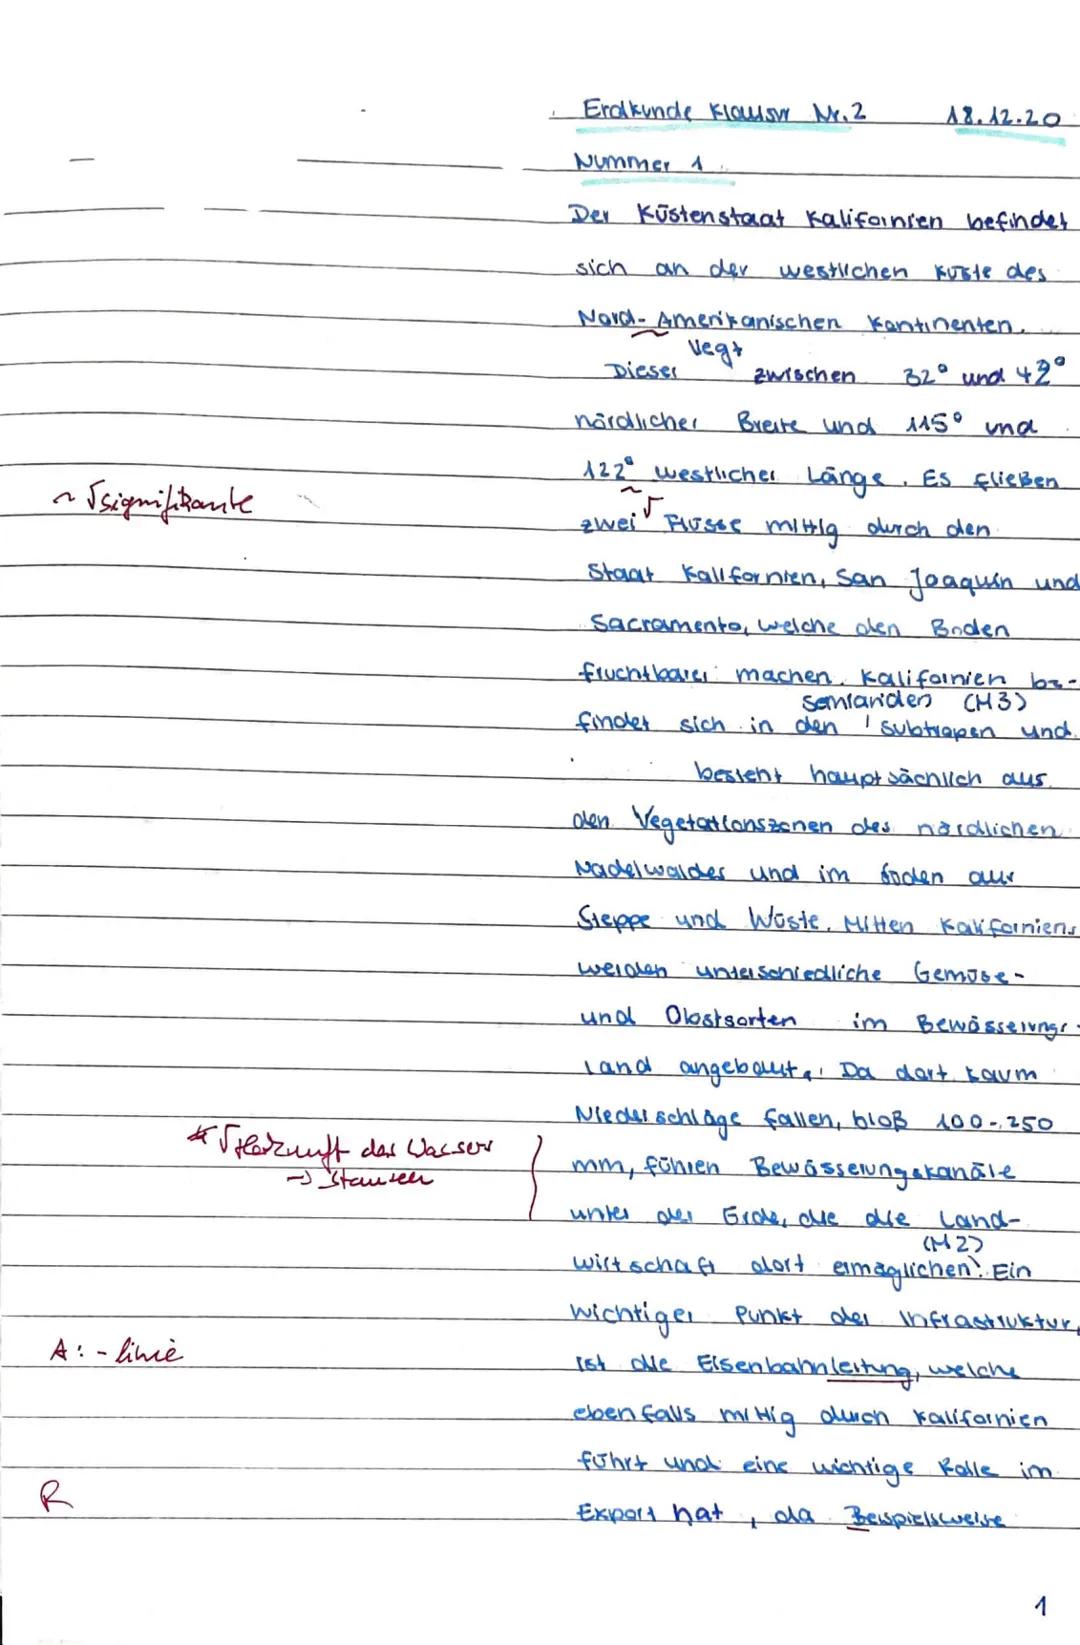 Erdkunde Klausur Nr. 2 18.12.20
Nummer 1
Der Küstenstaat Kalifornien befindet
sich an der westlichen Küste des
Nord-Amerikanischen Kontinenten.
Dieser liegt zwischen 32° und 42°
nördlicher Breite und 115° und
122° westlicher Länge. Es fließen
~ √signifikante
zwei √ Flüsse mittig durch den
Staat Kalifornien, San Joaquin und
Sacramento, welche den Boden
fruchtbarer machen. Kalifornien be-
semiariden (M3)
findet sich in den Subtropen und
besteht hauptsächlich aus
den Vegetationszonen des nördlichen
Nadelwaldes und im Boden aus
Steppe und Wüste. Mitten Kaliforniens
werden unterschiedliche Gemüse-
und Obstsorten im Bewässerungs-
land angebaut. Da dort kaum
Niederschläge fallen, bloß 100-250
* √Herkunft des Wassers
→ Stauseen
mm, führen Bewässerungskanäle
unter der Erde, die die Land-
(M2)
wirtschaft dort ermöglichen. Ein
wichtiger Punkt der Infrastruktur,
A: -linie
ist die Eisenbahnleitung, welche
ebenfalls mittig durch Kalifornien
führt und eine wichtige Rolle im
R
Export hat, da Beispielsweise
1